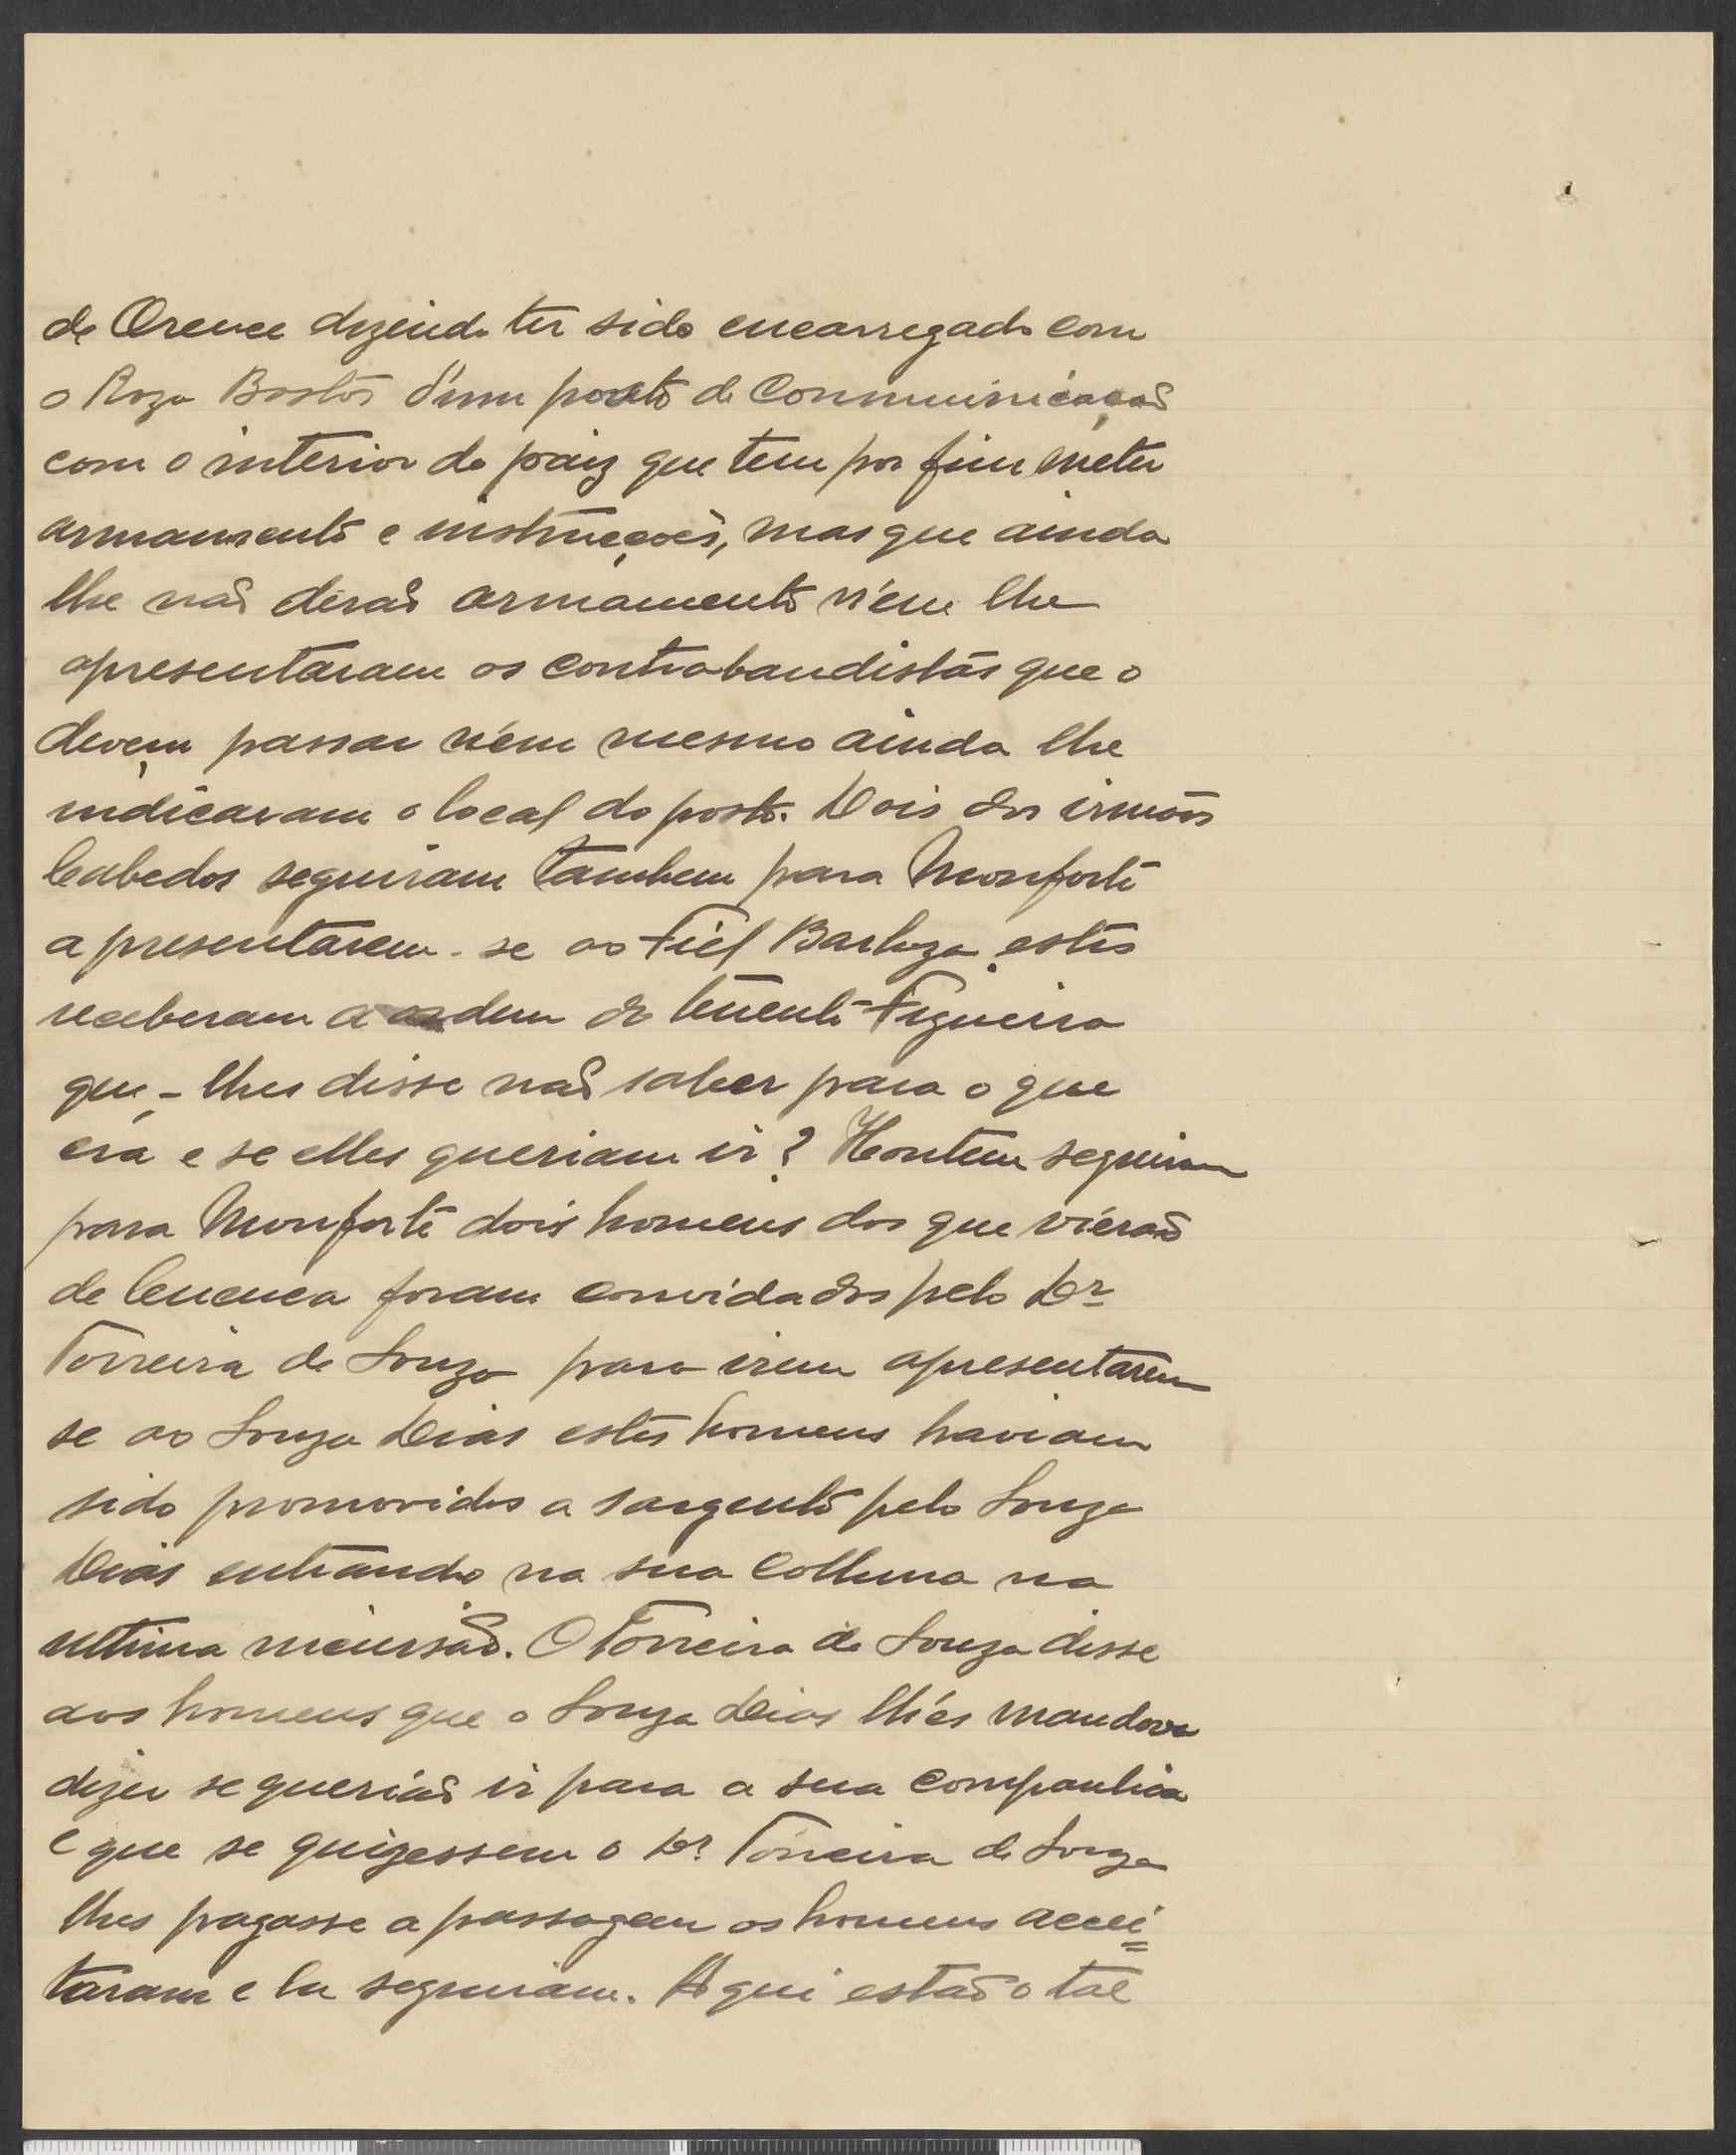 de Orence dizendo ter sido encarregado com
o Roza Bastos d'um posto de Communicaçaõ
com o interior do paiz que tem por fim meter
armamento e instrucções, mas que ainda
lhe naõ deraõ armamento n'em lhe
apresentaram os contrabandistas que o
devem passar n'em mesmo ainda lhe
indicaram o local do posto. Dois dos irmãos
Cabedos seguiram tambem para Monforte
apresentarem-se ao Fiel Barboza estes
receberam a ordem do tenente Figueira
que-lhes disse naõ saber para o que
era e se elles queriam ir? Hontem seguiram
para Monforte dois homens dos que vieraõ
de Cuenca foram convidados pelo Dr
Torreira de Souza para irem apresentarem
se ao Souza Dias estes homens haviam
sido promovidos a sargento pelo Souza
Dias entrando na sua Colluna na
ultima incursaõ. O Torreira de Souza disse
aos homens que o Souza Dias lh'es mandava
dizer se queriaõ ir para a sua companhia
e que se quizessem o Dr. Torreira de Souza
lhes pagasse a passagem os homens accei=
taram e la seguiram. Aqui estaõ o tal